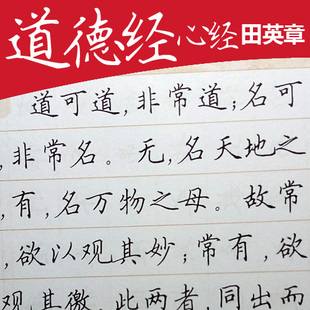 道德经心经田英章
道可道,非常道;名可
,非常名。无,名天地之
,有,名万物之母。故常
,欲以观其妙;常有,欲
观其徼。此两者,同出而